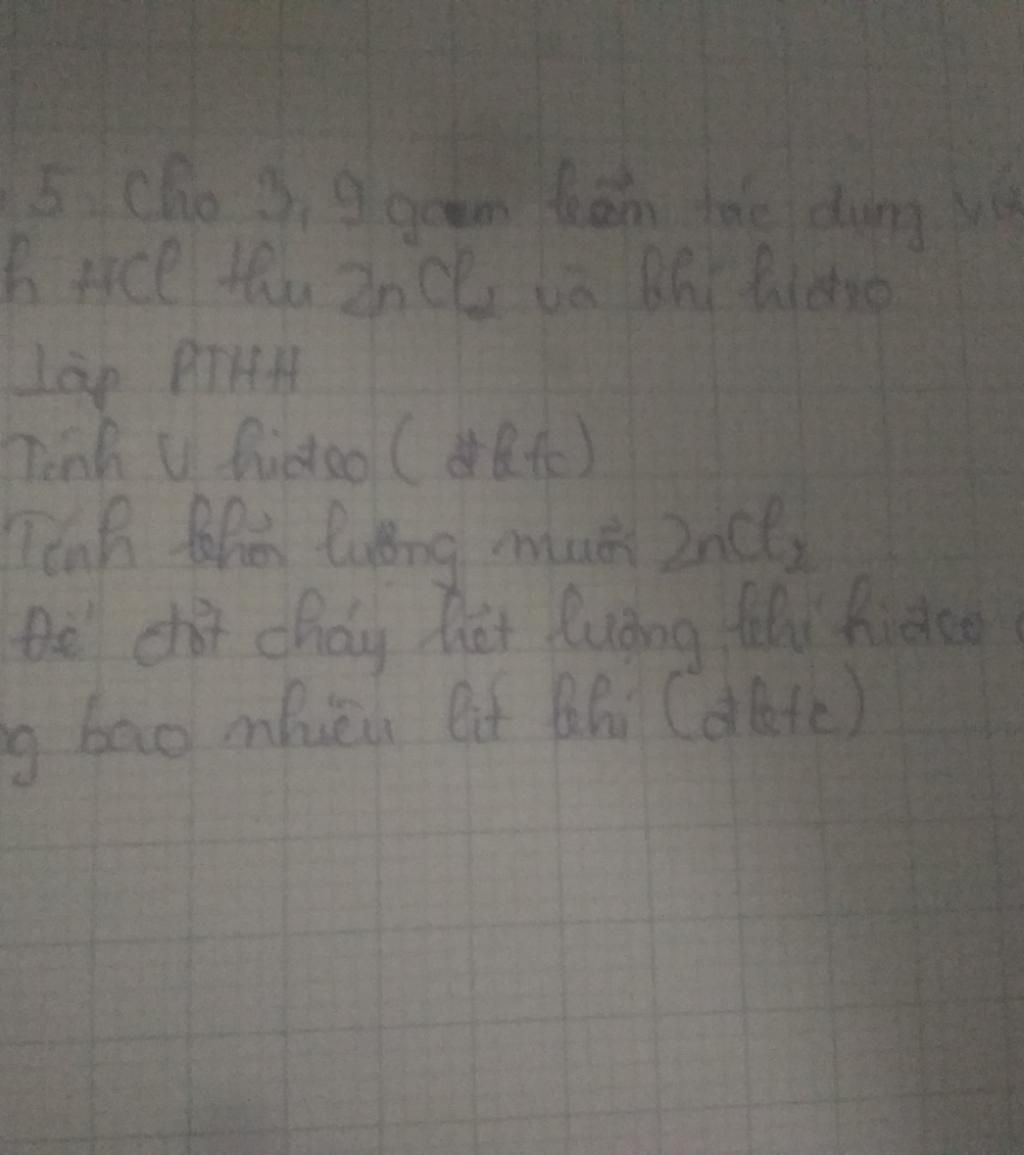 5. Cho 3,9 gam kẽm tác dụng với
h HCl thu ZnCl₂ và khí hidro
Lập PTHH
Tính V hidro (đktc)
Tính khối lượng muối ZnCl₂
Để đốt cháy hết lượng khí hidro
g bao nhiêu lít khí (đktc)